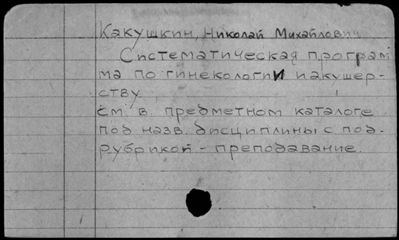 Какушкин, Николай Михайлович
Систематическая програм
ма по гинекологии и акушер-
ству
см. в. предметном каталоге
под назв. дисциплины с под-
рубрикой - преподавание.